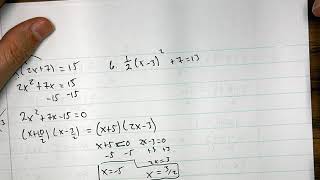 (2x+7) = 15
2x² + 7x = 15
-15 -15
2x² + 7x - 15 = 0
(x+10/2)(x-3/2) = (x+5)(2x-3)
x+5=0 2x-3=0
-5 -5 +3 +3
2x=3
x=-5 x=3/2
6. 1/2(x-3)² + 7 = 13